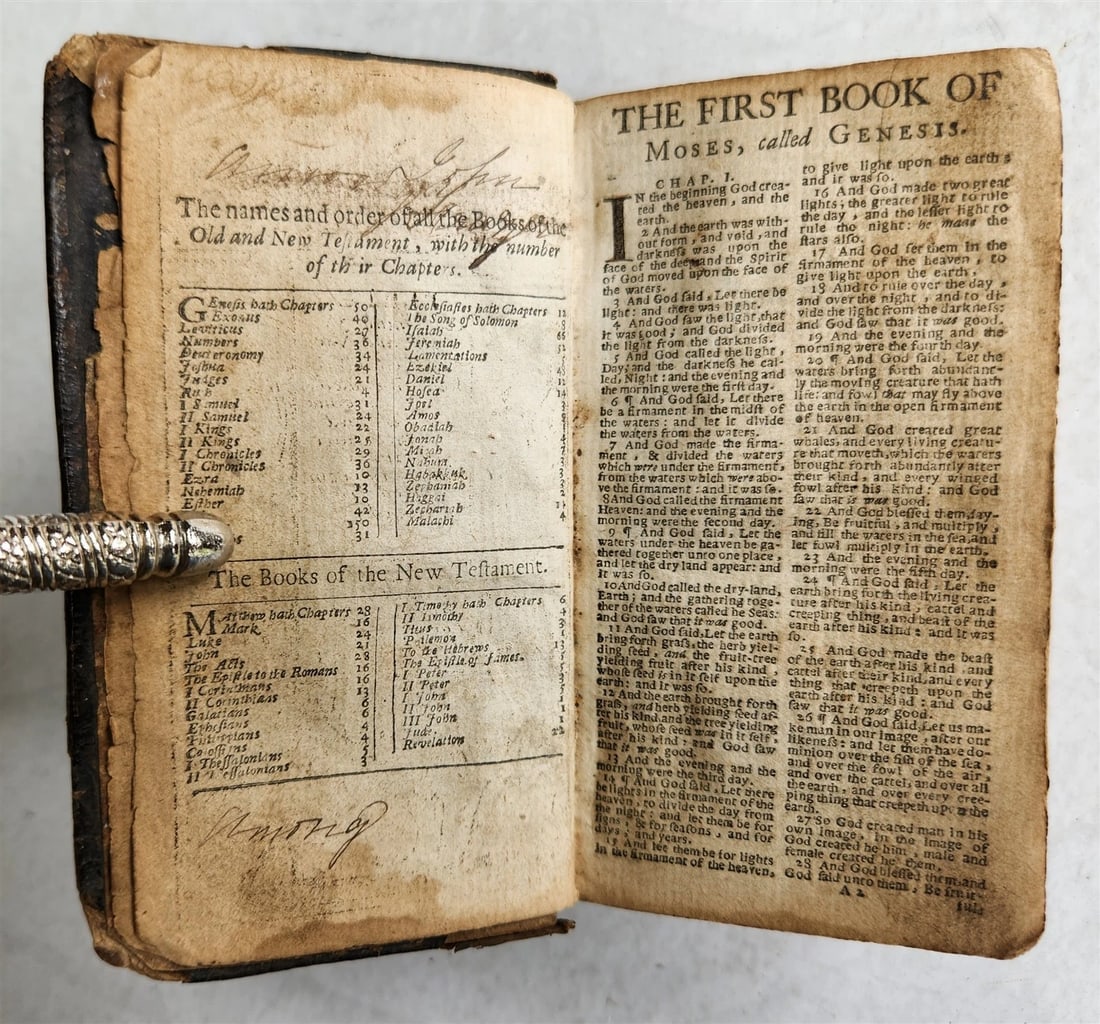 John
The names and order of all the Books of the
Old and New Testament, with the number
of th ir Chapters.
GEnesis hath Chapters 50
Exodus 40
Leviticus 27
Numbers 36
Deuteronomy 34
Joshua 24
Judges 21
Ruth 4
I Samuel 31
II Samuel 24
I Kings 22
II Kings 25
I Chronicles 29
II Chronicles 36
Ezra 10
Nehemiah 13
Esther 10
42
150
31
Ecclesiastes hath Chapters 12
The Song of Solomon 8
Isaiah 66
Jeremiah 52
Lamentations 5
Ezekiel 48
Daniel 12
Hosea 14
Joel 3
Amos 9
Obadiah 1
Jonah 4
Micah 7
Nahum 3
Habakkuk 3
Zephaniah 3
Haggai 2
Zechariah 14
Malachi 4
The Books of the New Testament.
MAtthew hath Chapters 28
Mark 16
Luke 24
John 21
The Acts 28
The Epistle to the Romans 16
I Corinthians 16
II Corinthians 13
Galatians 6
Ephesians 6
Philippians 4
Colossians 4
I Thessalonians 5
II Thessalonians 3
I Timothy hath Chapters 6
II Timothy 4
Titus 3
Philemon 1
To the Hebrews 13
The Epistle of James. 5
I Peter 5
II Peter 3
I John 5
II John 1
III John 1
Jude 1
Revelation 22
Among
THE FIRST BOOK OF
MOSES, called GENESIS.
CHAP. I.
IN the beginning God crea-
ted the heaven, and the
earth.
2 And the earth was with-
out form, and void, and
darkness was upon the
face of the deep: and the Spirit
of God moved upon the face of
the waters.
3 And God said, Let there be
light: and there was light.
4 And God saw the light, that
it was good; and God divided
the light from the darkness.
5 And God called the light,
Day; and the darkness he cal-
led, Night: and the evening and
the morning were the first day.
6 ¶ And God said, Let there
be a firmament in the midst of
the waters: and let it divide
the waters from the waters.
7 And God made the firma-
ment, & divided the waters
which were under the firmament,
from the waters which were abo-
ve the firmament: and it was so.
8 And God called the firmament
Heaven: and the evening and the
morning were the second day.
9 ¶ And God said, Let the
waters under the heaven be ga-
thered together unto one place,
and let the dry land appear: and
it was so.
10 And God called the dry-land,
Earth; and the gathering toge-
ther of the waters called he Seas:
and God saw that it was good.
11 And God said, Let the earth
bring forth grass, the herb yiel-
ding seed, and the fruit-tree
yielding fruit after his kind,
whose seed is in it self upon the
earth: and it was so.
12 And the earth brought forth
grass, and herb yielding seed af-
ter his kind, and the tree yielding
fruit, whose seed was in it self,
after his kind: and God saw
that it was good.
13 And the evening and the
morning were the third day.
14 ¶ And God said, Let there
be lights in the firmament of the
heaven, to divide the day from
the night: and let them be for
signs, & for seasons, and for
days, and years.
15 And let them be for lights
in the firmament of the heaven,
to give light upon the earth:
and it was so.
16 And God made two great
lights; the greater light to rule
the day, and the lesser light to
rule the night: he made the
stars also.
17 And God set them in the
firmament of the heaven, to
give light upon the earth,
18 And to rule over the day,
and over the night, and to di-
vide the light from the darkness:
and God saw that it was good.
19 And the evening and the
morning were the fourth day.
20 ¶ And God said, Let the
waters bring forth abundant-
ly the moving creature that hath
life: and fowl that may fly above
the earth in the open firmament
of heaven.
21 And God created great
whales, and every living creatu-
re that moveth, which the waters
brought forth abundantly after
their kind, and every winged
fowl after his kind: and God
saw that it was good.
22 And God blessed them, say-
ing, Be fruitful, and multiply,
and fill the waters in the sea, and
let fowl multiply in the earth.
23 And the evening and the
morning were the fifth day.
24 ¶ And God said, Let the
earth bring forth the living crea-
ture after his kind, cattel and
creeping thing, and beast of the
earth after his kind: and it was
so.
25 And God made the beast
of the earth after his kind, and
cattel after their kind, and every
thing that creepeth upon the
earth after his kind: and God
saw that it was good.
26 ¶ And God said, Let us ma-
ke man in our image, after our
likeness: and let them have do-
minion over the fish of the sea,
and over the fowl of the air,
and over the cattel, and over all
the earth, and over every cree-
ping thing that creepeth upon the
earth.
27 So God created man in his
own image, in the image of
God created he him, male and
female created he them,
28 And God blessed them, and
God said unto them, Be fruit-
A 2
ful,